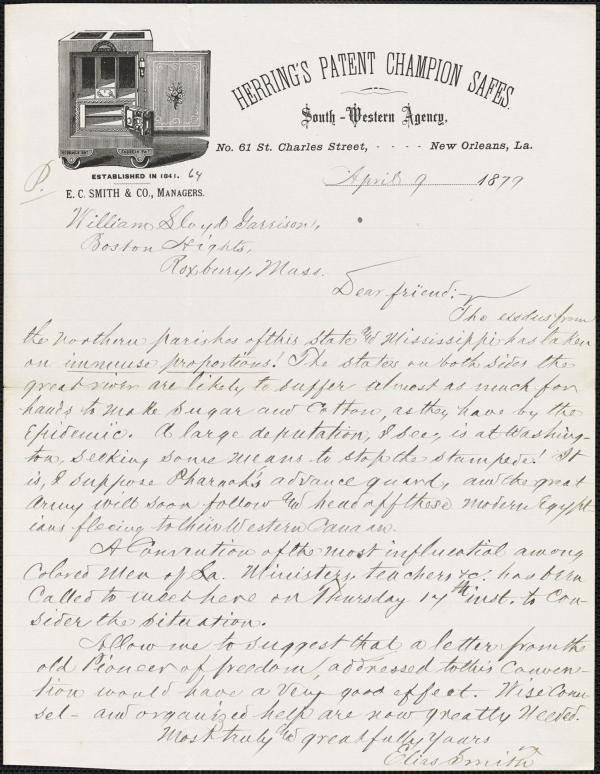 HERRING'S PATENT CHAMPION SAFES.
South-Western Agency,
No. 61 St. Charles Street, - - - - New Orleans, La.
ESTABLISHED IN 1841. 64
E. C. SMITH & CO., MANAGERS.
P.
April 9 1879
William Lloyd Garrison,
Boston Hights,
Roxbury, Mass.
Dear friend:-
The exodus from
the northern parishes of this state and Mississippi has taken
on immense proportions! The states on both sides the
great river are likely to suffer almost as much for
hands to make sugar and cotton, as they have by the
Epidemic. A large deputation, I see, is at Washing-
ton, seeking some means to stop the stampede! It
is, I suppose Pharaoh's advance guard, and the great
Army will soon follow and head off these modern Egypt-
ians fleeing to their Western Canaan.
A Convention of the most influential among
Colored Men of La. Ministers, teachers &c. has been
Called to meet here on Thursday 17th inst. to Con-
sider the situation.
Allow me to suggest that a letter from the
old Pioneer of freedom, addressed to this Conven-
tion would have a very good effect. Wise Coun-
sel - and organized help are now greatly needed.
Most truly and greatfully Yours
Elias Smith